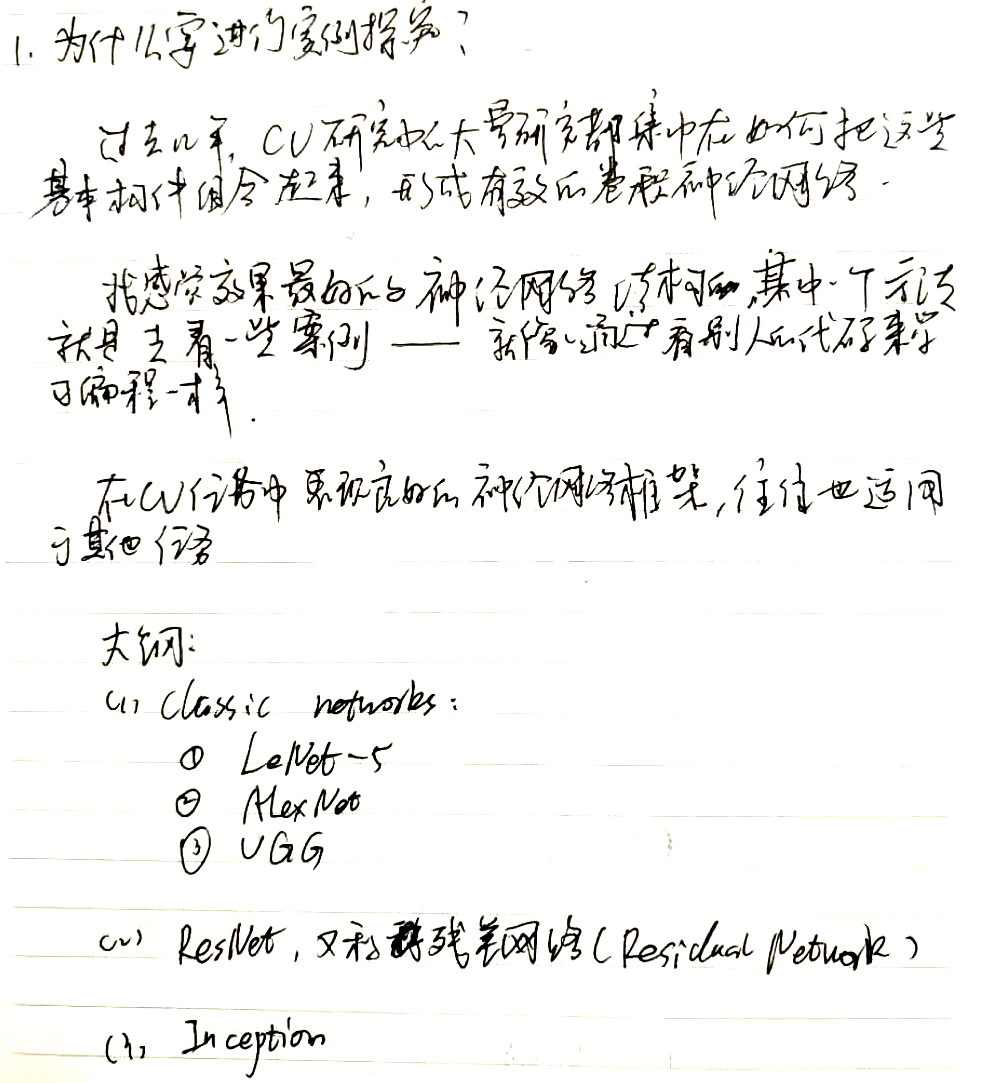 1. 为什么要进行实例探究?
过去几年, CV研究中的大量研究都集中在如何把这些
基本构件组合起来, 形成有效的卷积神经网络.
找感觉效果最好的的神经网络结构, 其中一个方法
就是去看一些案例 —— 就像通过看别人的代码来学
习编程一样.
在CV任务中表现良好的神经网络框架, 往往也适用
于其他任务
大纲:
(1) Classic networks:
① LeNet-5
② AlexNet
③ VGG
(2) ResNet, 又称残差网络(Residual Network)
(3) Inception